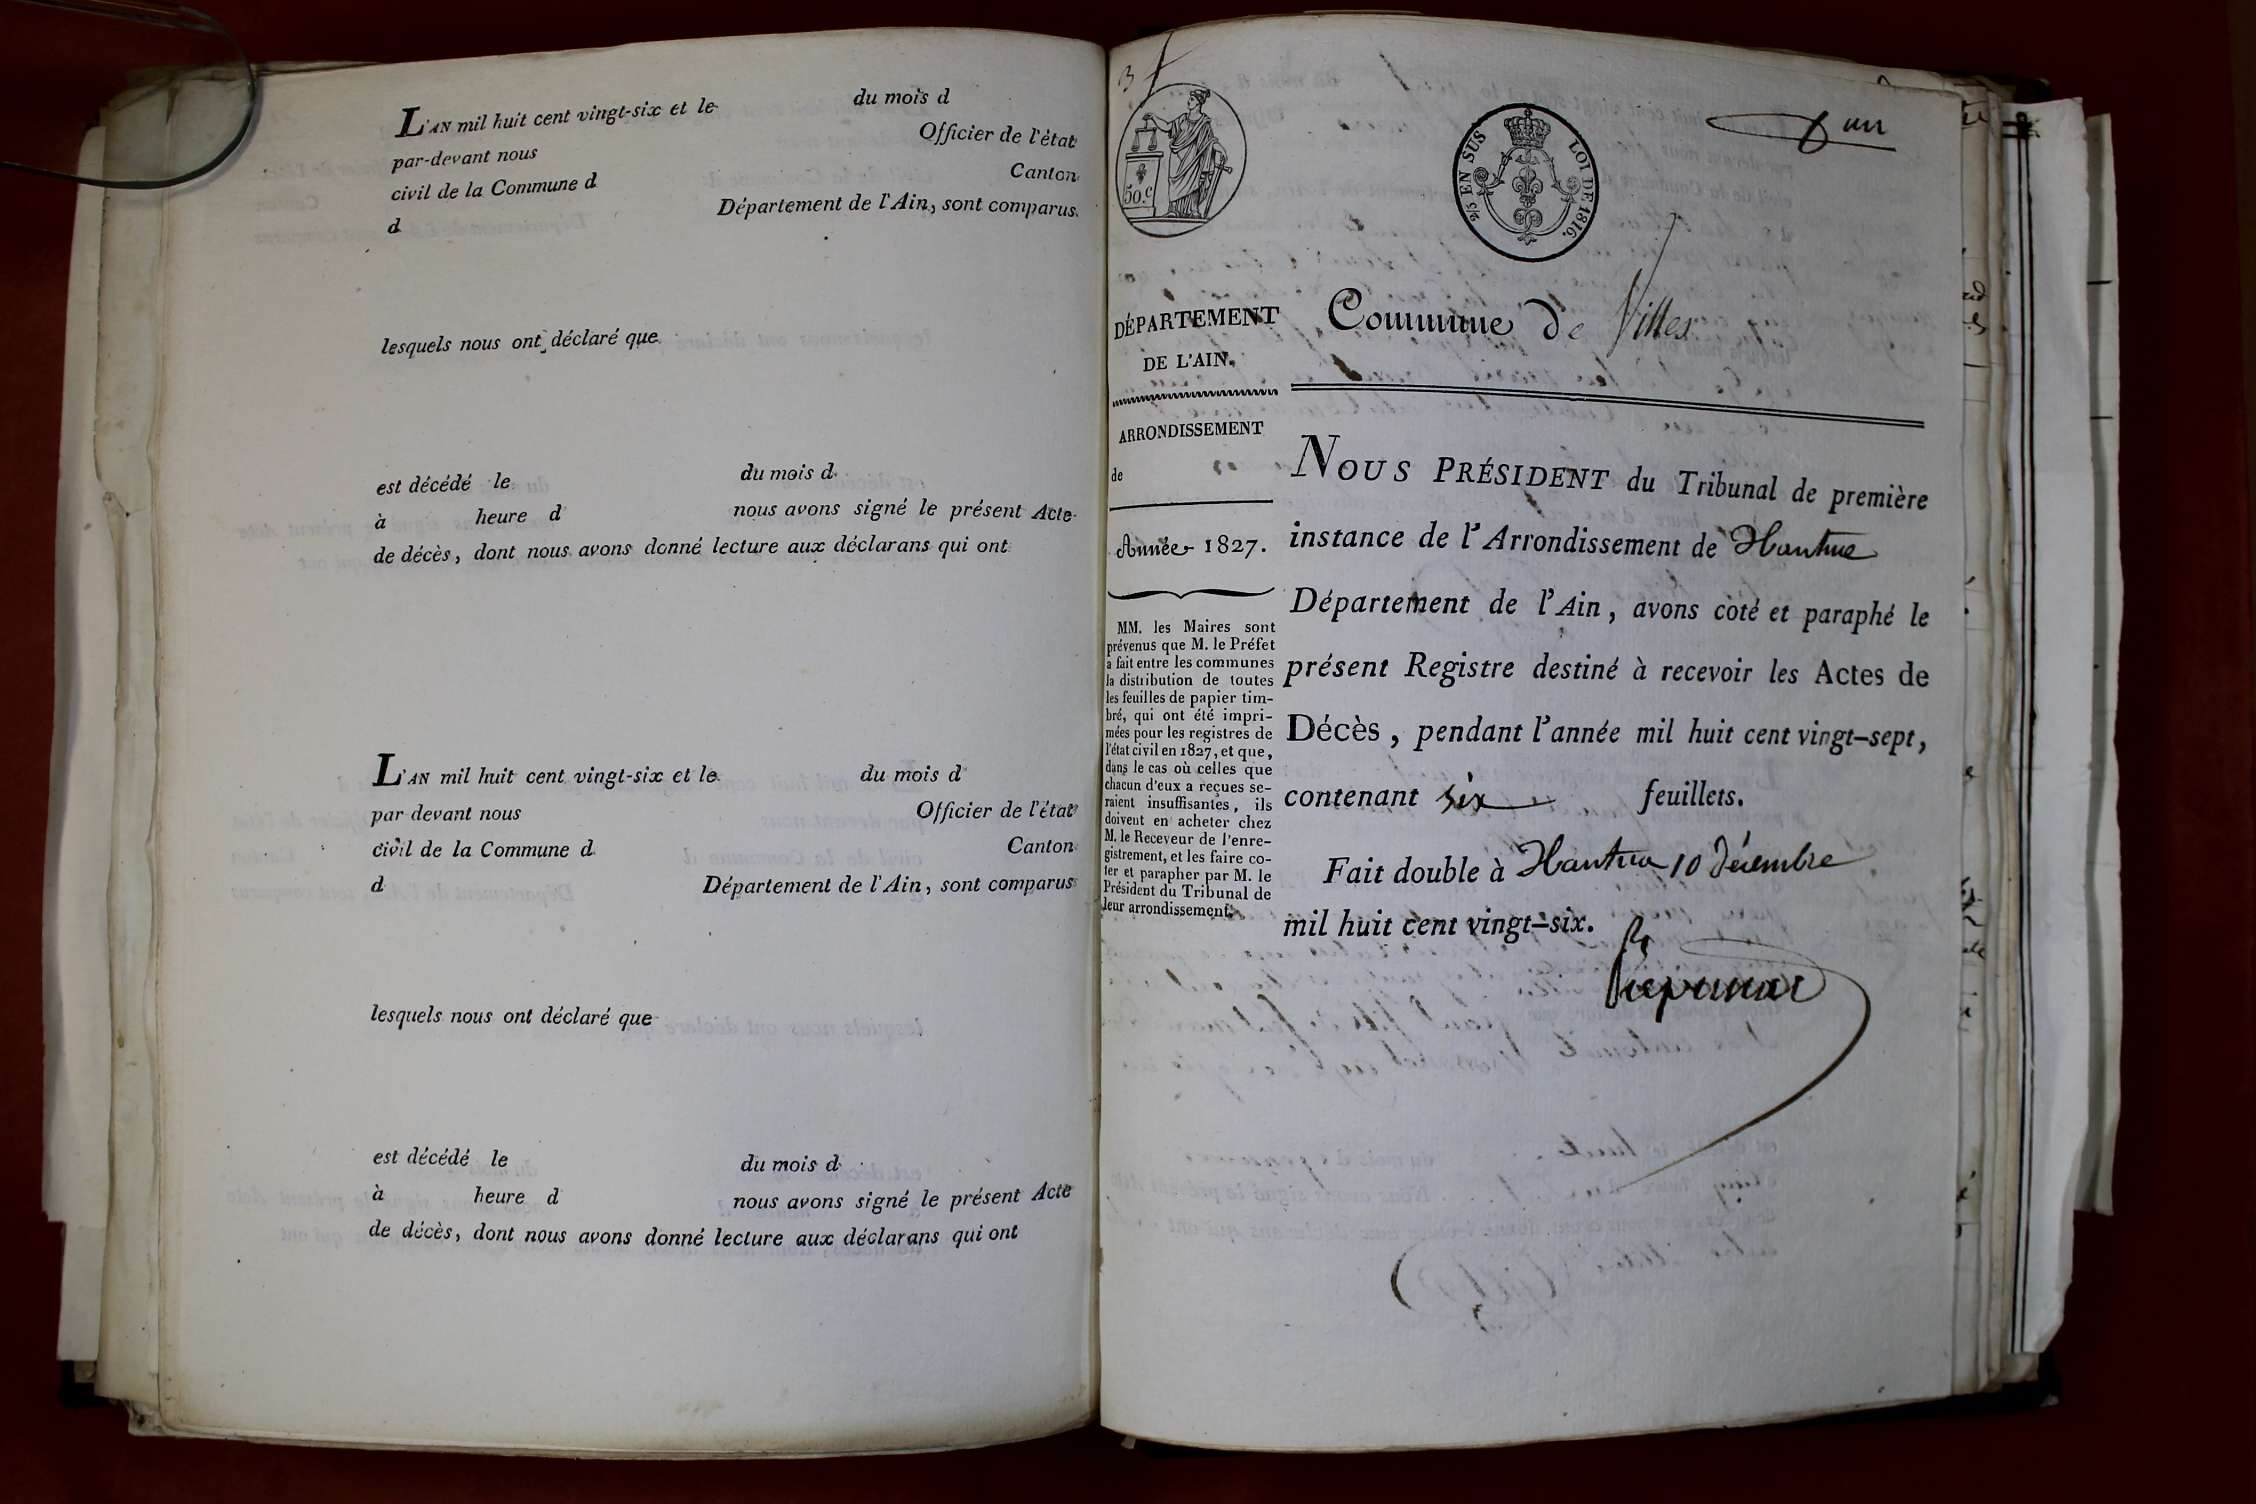 L'AN mil huit cent vingt-six et le du mois d
par-devant nous Officier de l'état
civil de la Commune d Canton
d Département de l'Ain, sont comparus
lesquels nous ont déclaré que
est décédé le du mois d
à heure d nous avons signé le présent Acte
de décès, dont nous avons donné lecture aux déclarans qui ont
L'AN mil huit cent vingt-six et le du mois d
par devant nous Officier de l'état
civil de la Commune d Canton
d Département de l'Ain, sont comparus
lesquels nous ont déclaré que
est décédé le du mois d
à heure d nous avons signé le présent Acte
de décès, dont nous avons donné lecture aux déclarans qui ont
50.c
2/5 EN SUS LOI DE 1816.
un
DÉPARTEMENT
DE L'AIN.
ARRONDISSEMENT
de
Année 1827.
MM. les Maires sont
prévenus que M. le Préfet
a fait entre les communes
la distribution de toutes
les feuilles de papier tim-
bré, qui ont été impri-
mées pour les registres de
l'état civil en 1827, et que,
dans le cas où celles que
chacun d'eux a reçues se-
raient insuffisantes, ils
doivent en acheter chez
M. le Receveur de l'enre-
gistrement, et les faire co-
ter et parapher par M. le
Président du Tribunal de
leur arrondissement.
Commune de Villes
NOUS PRÉSIDENT du Tribunal de première
instance de l'Arrondissement de Nantua
Département de l'Ain, avons coté et paraphé le
présent Registre destiné à recevoir les Actes de
Décès, pendant l'année mil huit cent vingt-sept,
contenant six feuillets.
Fait double à Nantua 10 décembre
mil huit cent vingt-six.